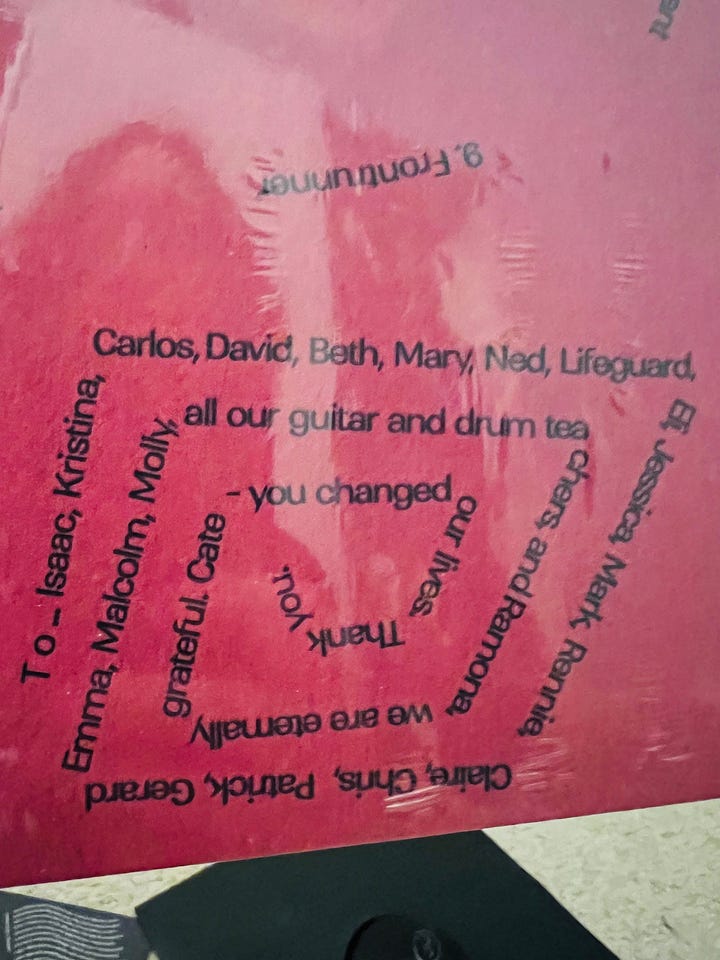 9. Frontrunner
To _ Isaac, Kristina,
Carlos, David, Beth, Mary, Ned, Lifeguard,
Eli, Jessica, Mark, Rennie,
Claire, Chris, Patrick, Gerard
Emma, Malcolm, Molly,
all our guitar and drum tea
chers, and Ramona,
we are eternally
grateful. Cate
- you changed
our lives.
Thank
you.